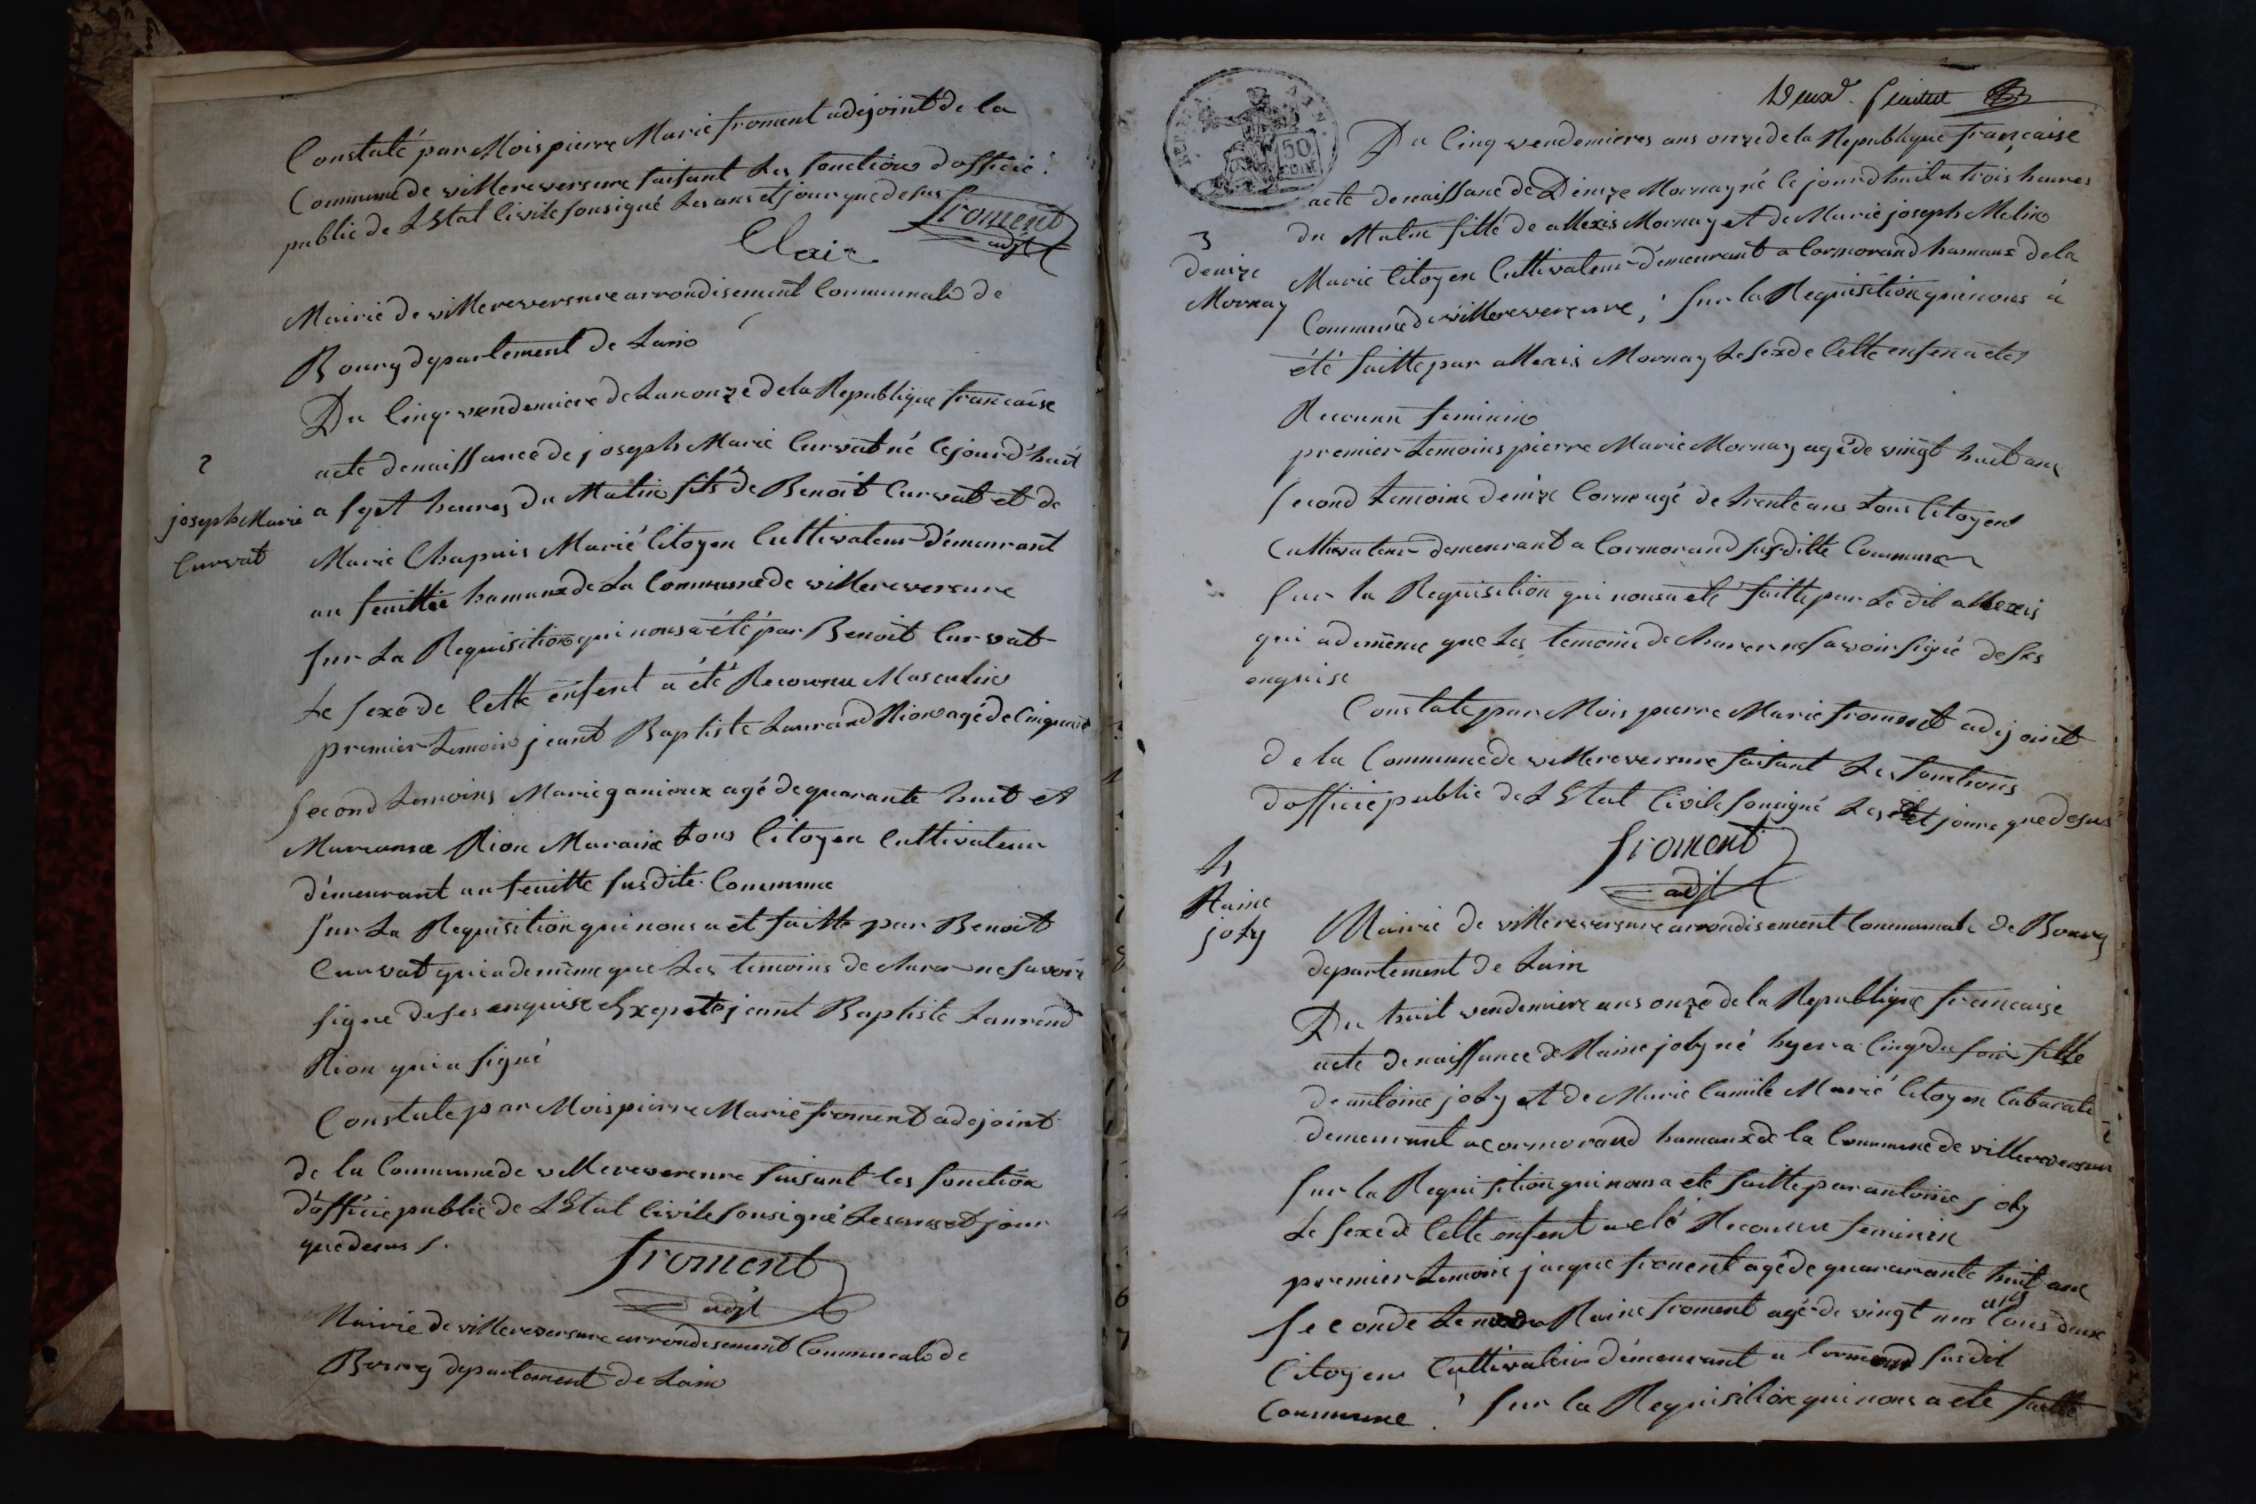 Constaté par Mois pierre Marie froment adejoint de la
Commune de villereversure faisant Les fonction dofficié
public de L Etat Civile sousigné Les ans et jour que desus
froment
adjt
Clair
Mairie de villereversure arrondisement Communale de
Bourg departement de Lain
Du Cinq vendemiere de Lan onze de la Republique francaise
2
joseph Marie
Curvat
acte de naissance de joseph Marie Curvat né Cejourd'huit
a sept heures du Matin fils de Benoit Curvat et de
Marie Chapuis Marié Citoyen Cultivateur démeurant
au feuillie hamaux de La Commune de villereversure
sur La Requisition qui nous a été par Benoit Curvat
Le sexe de Cette enfent a été Reconnu Masculin
premier temoin jeant Baptiste Laurend Rion agé de Cinquante
second temoins Marie ganieux agé de quarante huit et
Rion Maraine tous Citoyen Cultivateur
démeurant au feuille susdite Commune
sur La Requisition qui nous a eté faitte par Benoit
Curvat qui a demême que Les temoins declarer ne savoir
signe de ses enquise Exepté jeant Baptiste Laurend
Rion qui a signé
Constate par Mois pierre Marie froment adejoint
de la Commune de villereversure faisant les fonction
d'officié public de L Etat Civile sousigné Les ans et jour
que desus s.
froment
adjt
Mairie de villereversure arrondisement Communale de
Bourg departement de Lain
feuillet
REP. FRA.
50
CENT.
Du Cinq vendemieres ans onze de la Republique française
3
denize
Mornay
acte de naissance de Denize Mornay né le jourdhuit a trois heures
du Matin fille de allexis Mornay et de Marie joseph Melin
Marie Citoyen Cultivateur démeurant a Cormorand hamaux de la
Commune de villereversure, sur la Requisition qui nous á
été faitte par allexis Mornay Le sexe de Cette enfen a eté
Reconnu feminin
premier temoins pierre Marie Mornay agé de vingt huit ans
second temoins denize Corne agé de trente ans tous Citoyens
Cultivateur demeurant a Cormorand susditte Commune
sur la Requisition qui nous a eté faitte par Le dit allexis
qui a demême que Les temoins declarer ne savoir signé de ses
enquise
Constate par Mois pierre Marie froment adejoint
de la Commune de villereversure faisant Les fonctions
dofficié public de L Etat Civile sousigné Les et jours que desus
froment
adjt
4
Raine
joly
Mairie de villereversure arrondisement Communale de Bourg
departement de Lain
Du huit vendemiere ans onze de la Republique francaise
acte de naissance de Raine joly né hyer a Cinq du soir fille
de antoine joly et de Marie Camile Marié Citoyen Cabarati
demeurant a cormorand hamaux de la Commune de villereversure
sur la Requisition qui nous a eté faitte par antoine joly
Le sexe de Cette enfent a eté Reconnu feminin
premier temoin jaque froment agé de quararante huit ans
seconde Raine froment agé de vingt ans tous deux
Citoyens Cultivateur démeurant a susdit
Commune. sur la Requisition qui nous a eté faitte